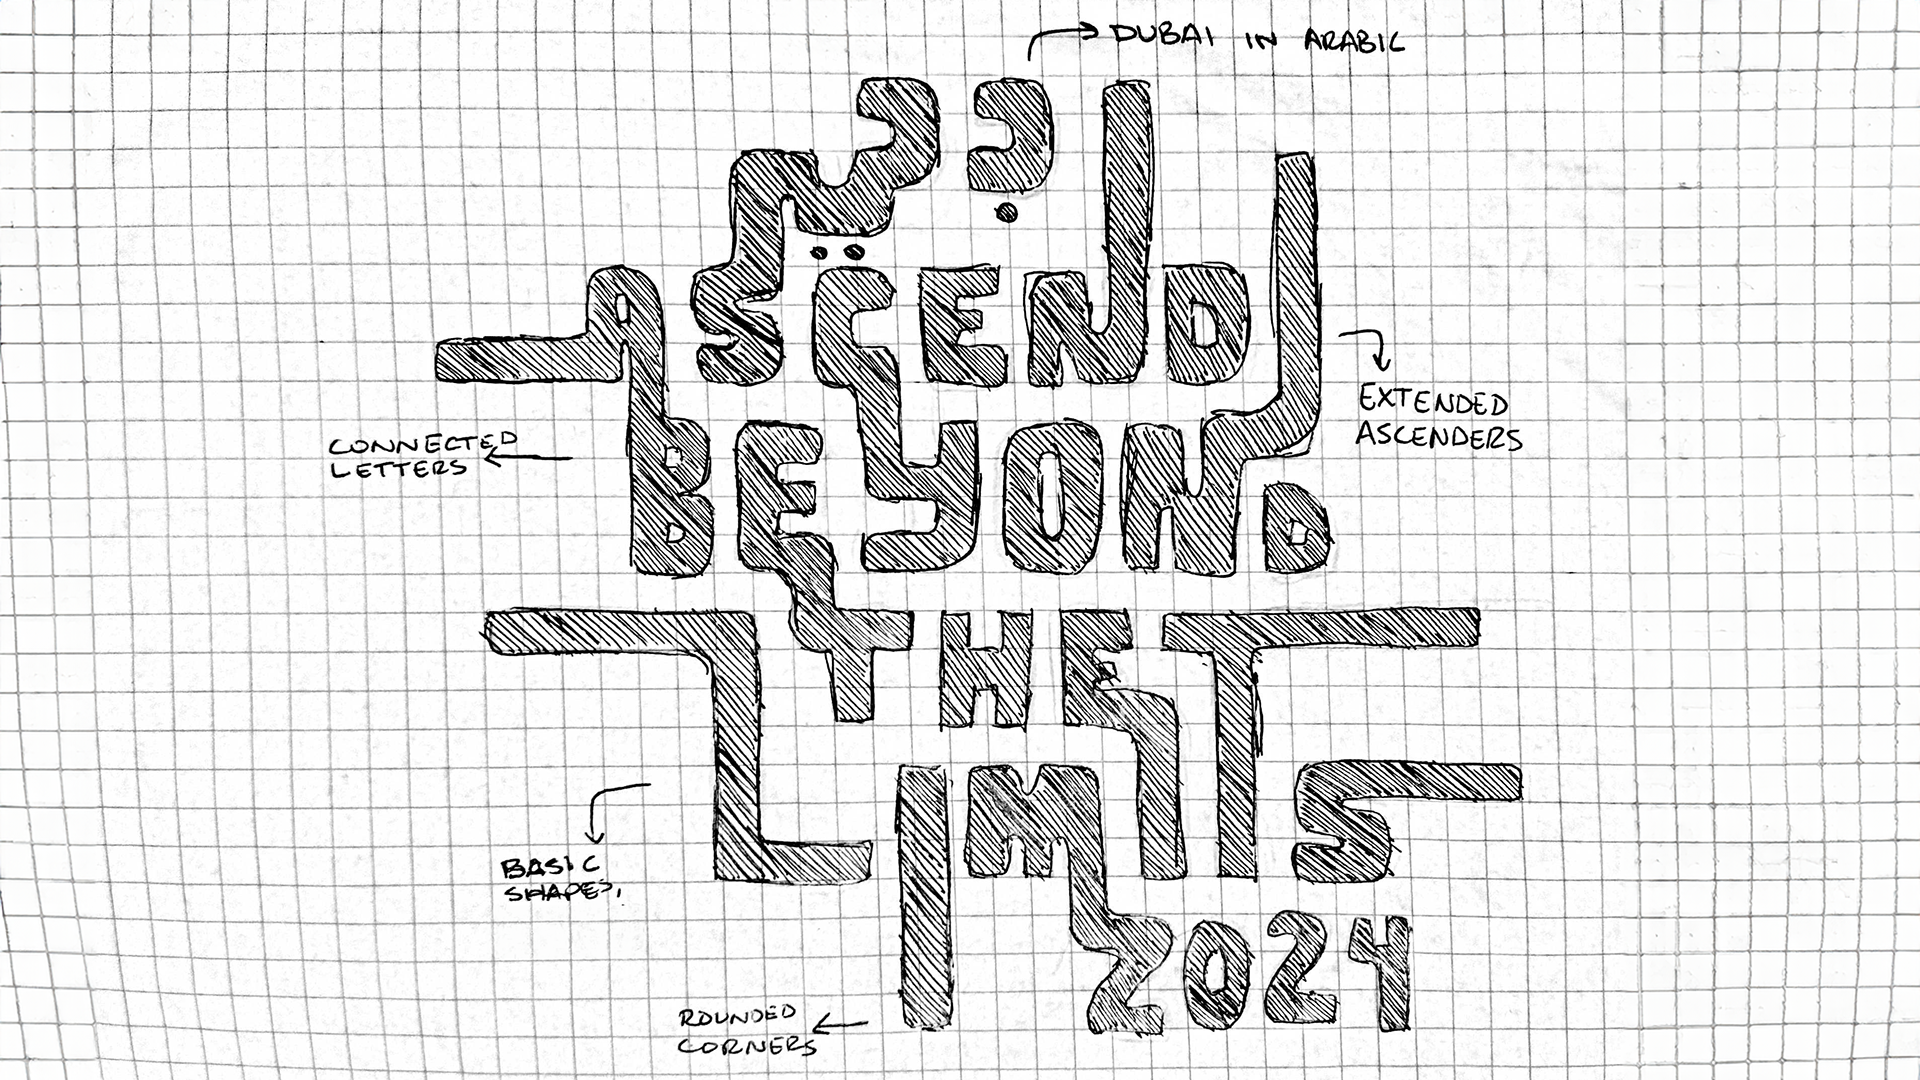 DUBAI IN ARABIC
دبي
ASCEND
EXTENDED
ASCENDERS
CONNECTED
LETTERS
BEYOND
THE
LIMITS
BASIC
SHAPES.
2024
ROUNDED
CORNERS